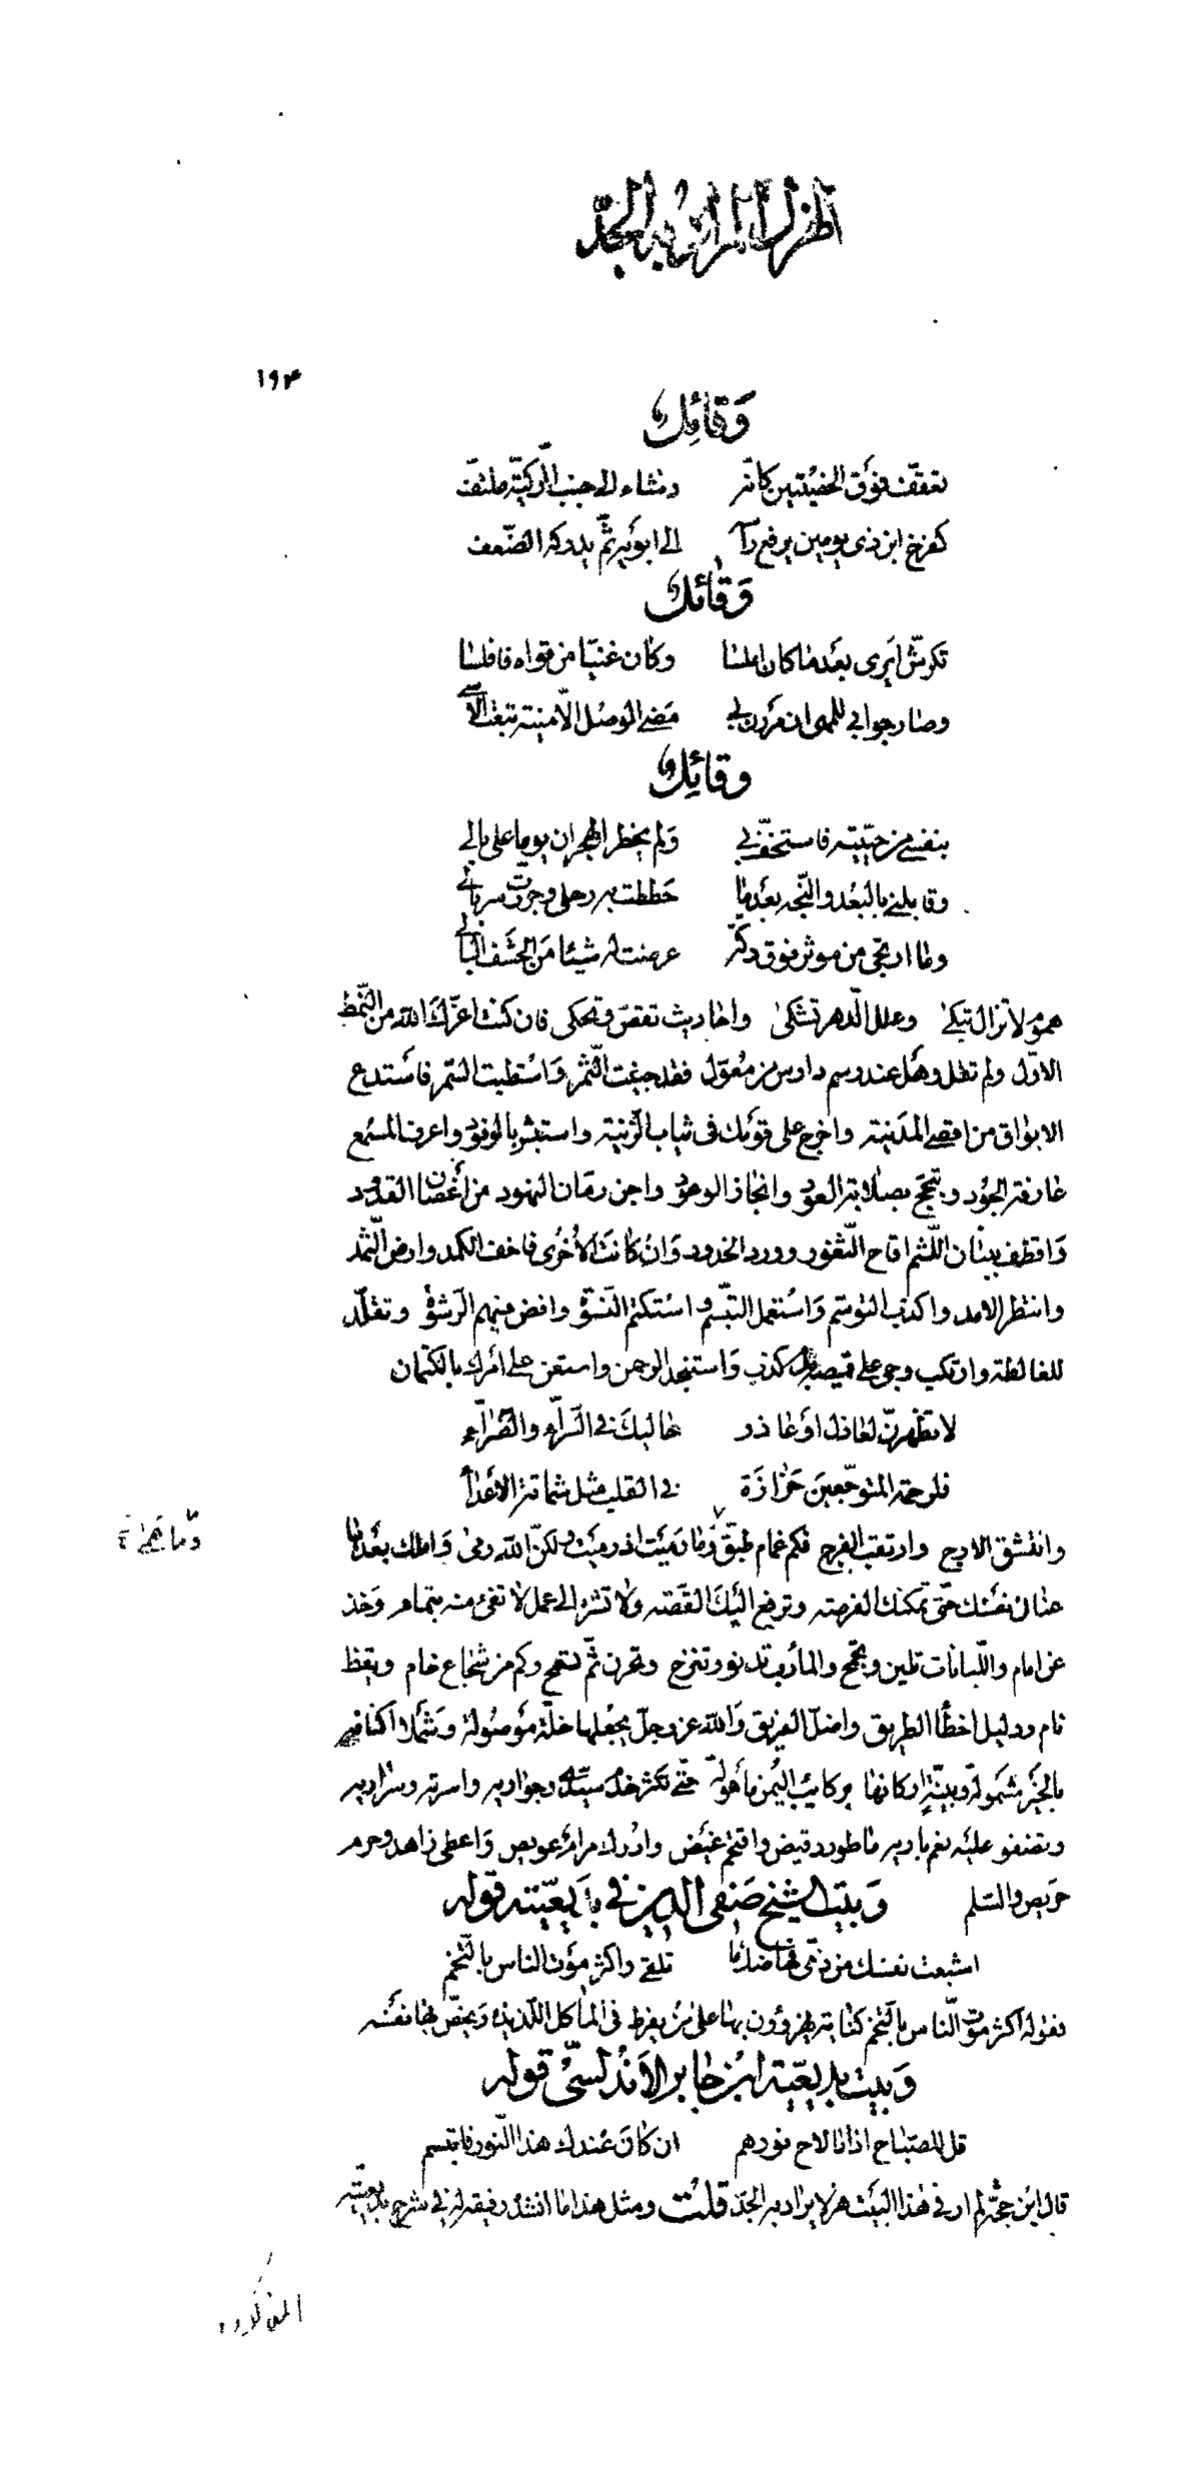 الهزل المراد به الجد
١٩٣
وقائل
تعقف فوق الخصيتين كانه رشاء الى جنب الركية ملتف
كفرخ ابن ذى يومين يرفع رأسه الى ابويه ثم يدركه الضعف
وقائل
تكرش ايرى بعدما كان املسا وكان غنيا من قواه فافلسا
وصار جوابى للمها ان مررن بى مضى الوصل الا منية تبعث الاسى
وقائل
بنفسى من حييته فاستخف بى ولم يخطر الهجران يوما على بالى
وقابلنى بالبعد والنجه بعدما حططت به رحلى وجردت سربالى
وما ارتجى من موثر فوق دكة عرضت له شيئا من الحشف البالى
هموم لا تزال تبكى وعلل الدهر تشكى واحاديث تقص وتحكى فان كنت اعزك الله من النمط
الاول ولم تقل وهل عند رسم دارس من معول فقد جنيت الثمر واستطبت السمر فاستدع
الابواق من اقصى المدينة واخرج على قومك فى ثياب الزينة واستبشر بالوفود واعرف المسمع
عارفة الجود وتبجح بصلابة العود وانجاز الوعود واجن رمان النهود من أغصان القدود
واقطف ببنان اللثم اقاح الثغور وورد الخدود وان كانت الأخرى فاخف الكمد وارض الثمد
وانتظر الامد واكذب التوسم واستعمل التبسم واستكتم النسوة وافض فيهم الرشوة وتقلد
المغالطة وارتكب وجئ على قميصه بدم كذب واستنجد الرحمن واستعن على امرك بالكتمان
لا تظهرن لعاذل او عاذر حاليك فى السرآء والضرآء
فلرحمة المتوجعين حزازة فى القلب مثل شماتة الاعدآء
وانتشق الارج وارتقب الفرج فكم غمام طبق وما رميت اذ رميت ولكن الله رمى واملك بعدها
وما همى
عنان نفسك حتى تمكنك الفرصة وترفع اليك القصة ولا تشره الى عمل لا تفئ منه بتمام وخذ
عن امام واللبانات تلين وتجمح والمأرب تدنو وتنزح وتحرن ثم تسمح وكم من شجاع خام ويقظ
نام ودليل اخطأ الطريق واضل الفريق والله عز وجل يجعلها خلة موصولة وشملا اكنافه
بالخير مشمولة وبنية اركانها بركائب اليمن مأهولة حتى تكثر خدم سيدى وجواريه واسرته وسراريه
وتضفو عليه نعم باريه ما طورد قنيص واقتحم عيص وادرك مرام عويص واعطى زاهد وحرم
حريص والسلم وبيت الشيخ صفى الدين فى بديعيته قوله
اشبعت نفسك من ذمى فهاضك ما تلقى واكثر موت الناس بالتخم
فقوله اكثر موت الناس بالتخم كناية يهزؤون بها على من يفرط فى المأكل اللذيذة ويخص بها نفسه
وبيت بديعية ابن جابر الاندلسى قوله
قل للصباح اذا ما لاح نورهم ان كان عندك هذا النور فابتسم
قال ابن حجة لم ار فى هذا البيت هزلا يراد به الجد قلت ومثل هذا ما انشده رفيقه له فى شرح بديعيته
المذكورة